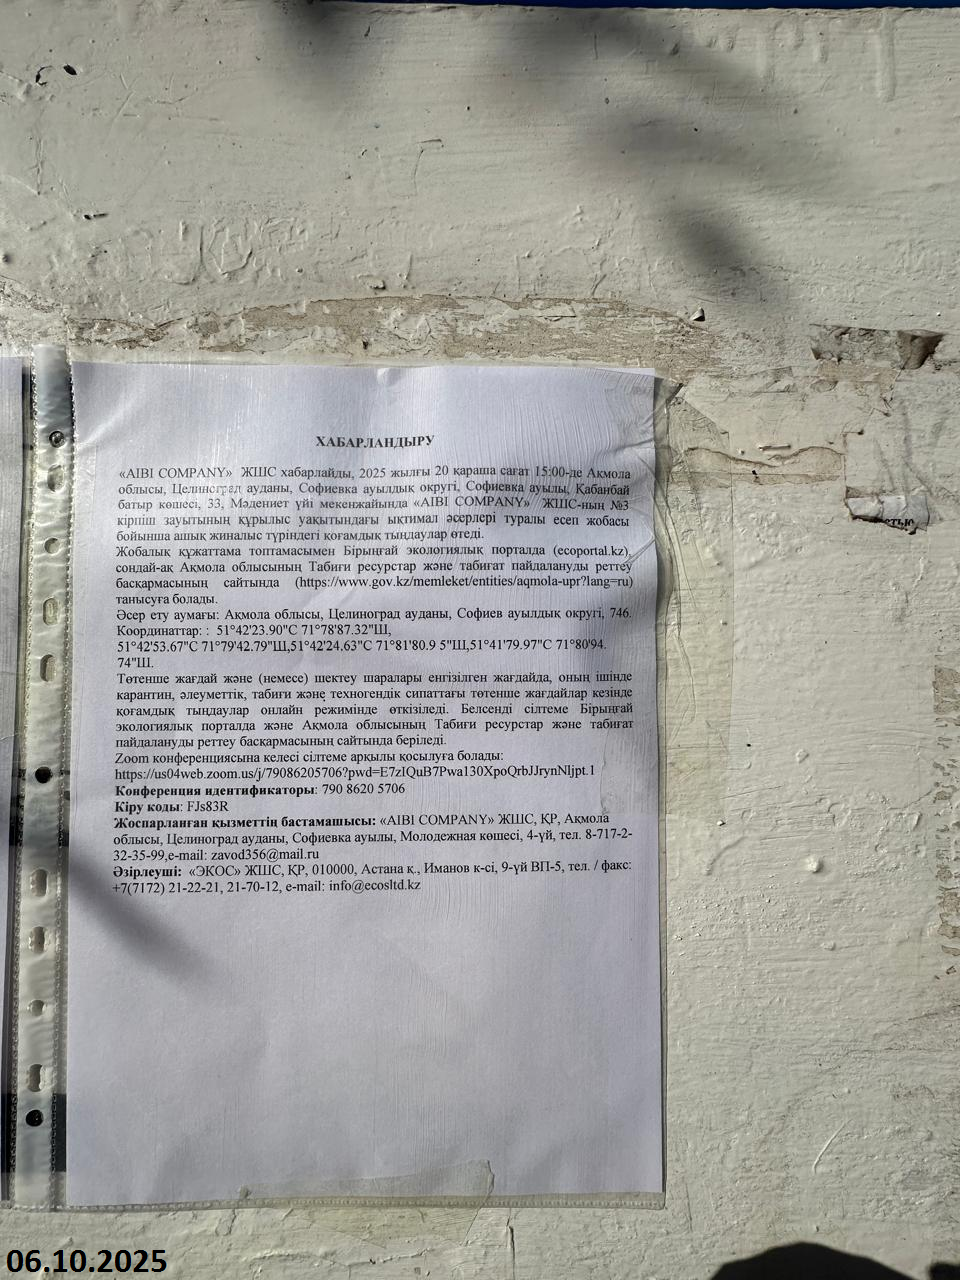 ХАБАРЛАНДЫРУ
«AIBI COMPANY» ЖШС хабарлайды, 2025 жылғы 20 қараша сағат 15:00-де Ақмола
облысы, Целиноград ауданы, Софиевка ауылдық округі, Софиевка ауылы, Қабанбай
батыр көшесі, 33, Мәдениет үйі мекенжайында «AIBI COMPANY» ЖШС-ның №3
кірпіш зауытының құрылыс уақытындағы ықтимал әсерлері туралы есеп жобасы
бойынша ашық жиналыс түріндегі қоғамдық тыңдаулар өтеді.
Жобалық құжаттама топтамасымен Бірыңғай экологиялық порталда (ecoportal.kz),
сондай-ақ Ақмола облысының Табиғи ресурстар және табиғат пайдалануды реттеу
басқармасының сайтында (https://www.gov.kz/memleket/entities/aqmola-upr?lang=ru)
танысуға болады.
Әсер ету аумағы: Ақмола облысы, Целиноград ауданы, Софиев ауылдық округі, 746.
Координаттар: : 51°42'23.90"С 71°78'87.32"Ш,
51°42'53.67"С 71°79'42.79"Ш,51°42'24.63"С 71°81'80.9 5"Ш,51°41'79.97"С 71°80'94.
74"Ш.
Төтенше жағдай және (немесе) шектеу шаралары енгізілген жағдайда, оның ішінде
карантин, әлеуметтік, табиғи және техногендік сипаттағы төтенше жағдайлар кезінде
қоғамдық тыңдаулар онлайн режимінде өткізіледі. Белсенді сілтеме Бірыңғай
экологиялық порталда және Ақмола облысының Табиғи ресурстар және табиғат
пайдалануды реттеу басқармасының сайтында беріледі.
Zoom конференциясына келесі сілтеме арқылы қосылуға болады:
https://us04web.zoom.us/j/79086205706?pwd=E7zIQuB7Pwa130XpoQrbJJrynNljpt.1
Конференция идентификаторы: 790 8620 5706
Кіру коды: FJs83R
Жоспарланған қызметтің бастамашысы: «AIBI COMPANY» ЖШС, ҚР, Ақмола
облысы, Целиноград ауданы, Софиевка ауылы, Молодежная көшесі, 4-үй, тел. 8-717-2-
32-35-99,e-mail: zavod356@mail.ru
Әзірлеуші: «ЭКОС» ЖШС, ҚР, 010000, Астана қ., Иманов к-сі, 9-үй ВП-5, тел. / факс:
+7(7172) 21-22-21, 21-70-12, e-mail: info@ecosltd.kz
06.10.2025